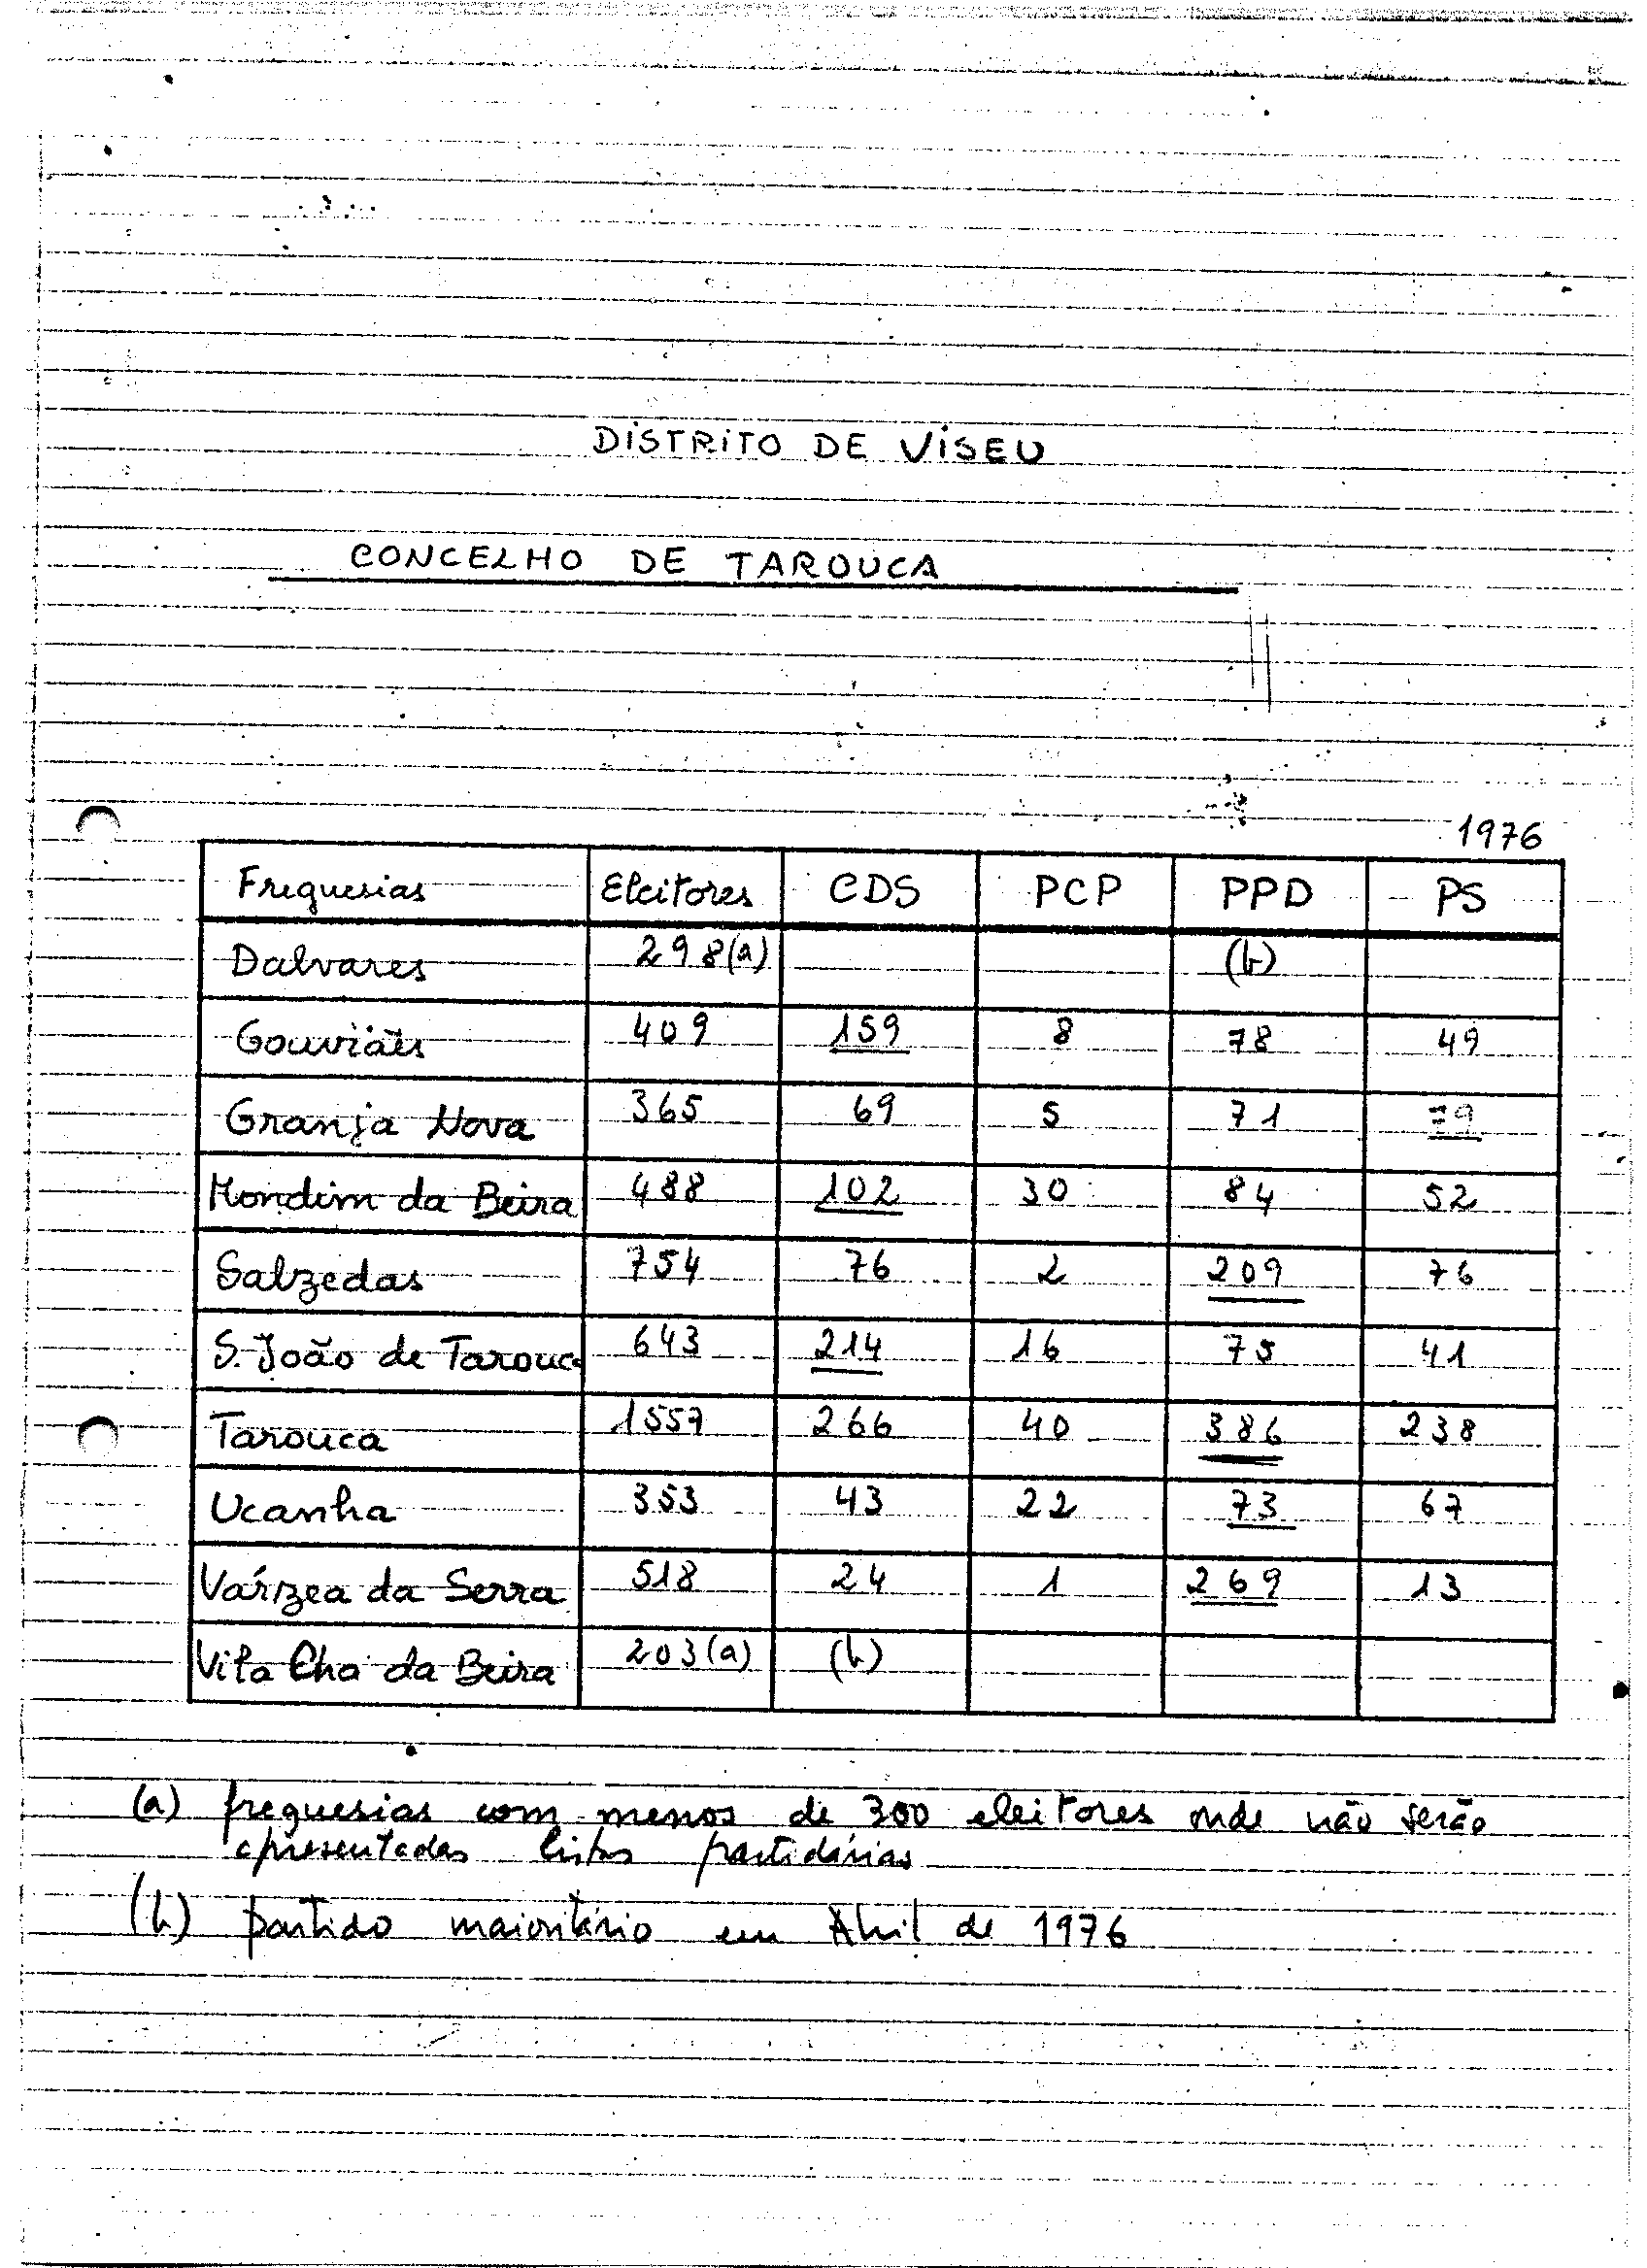 DISTRITO DE VISEU
CONCELHO DE TAROUCA
1976
Freguesias Eleitores CDS PCP PPD PS
Dalvares 298(a) (b)
Gouviães 409 159 8 78 49
Granja Nova 365 69 5 71 79
Mondim da Beira 488 102 30 84 52
Salzedas 754 76 2 209 76
S. João de Tarouca 643 214 16 75 41
Tarouca 1557 266 40 386 238
Ucanha 353 43 22 73 67
Várzea da Serra 518 24 1 269 13
Vila Chã da Beira 203(a) (b)
(a) freguesias com menos de 300 eleitores onde não serão
apresentadas listas partidárias
(b) partido maioritário em Abril de 1976